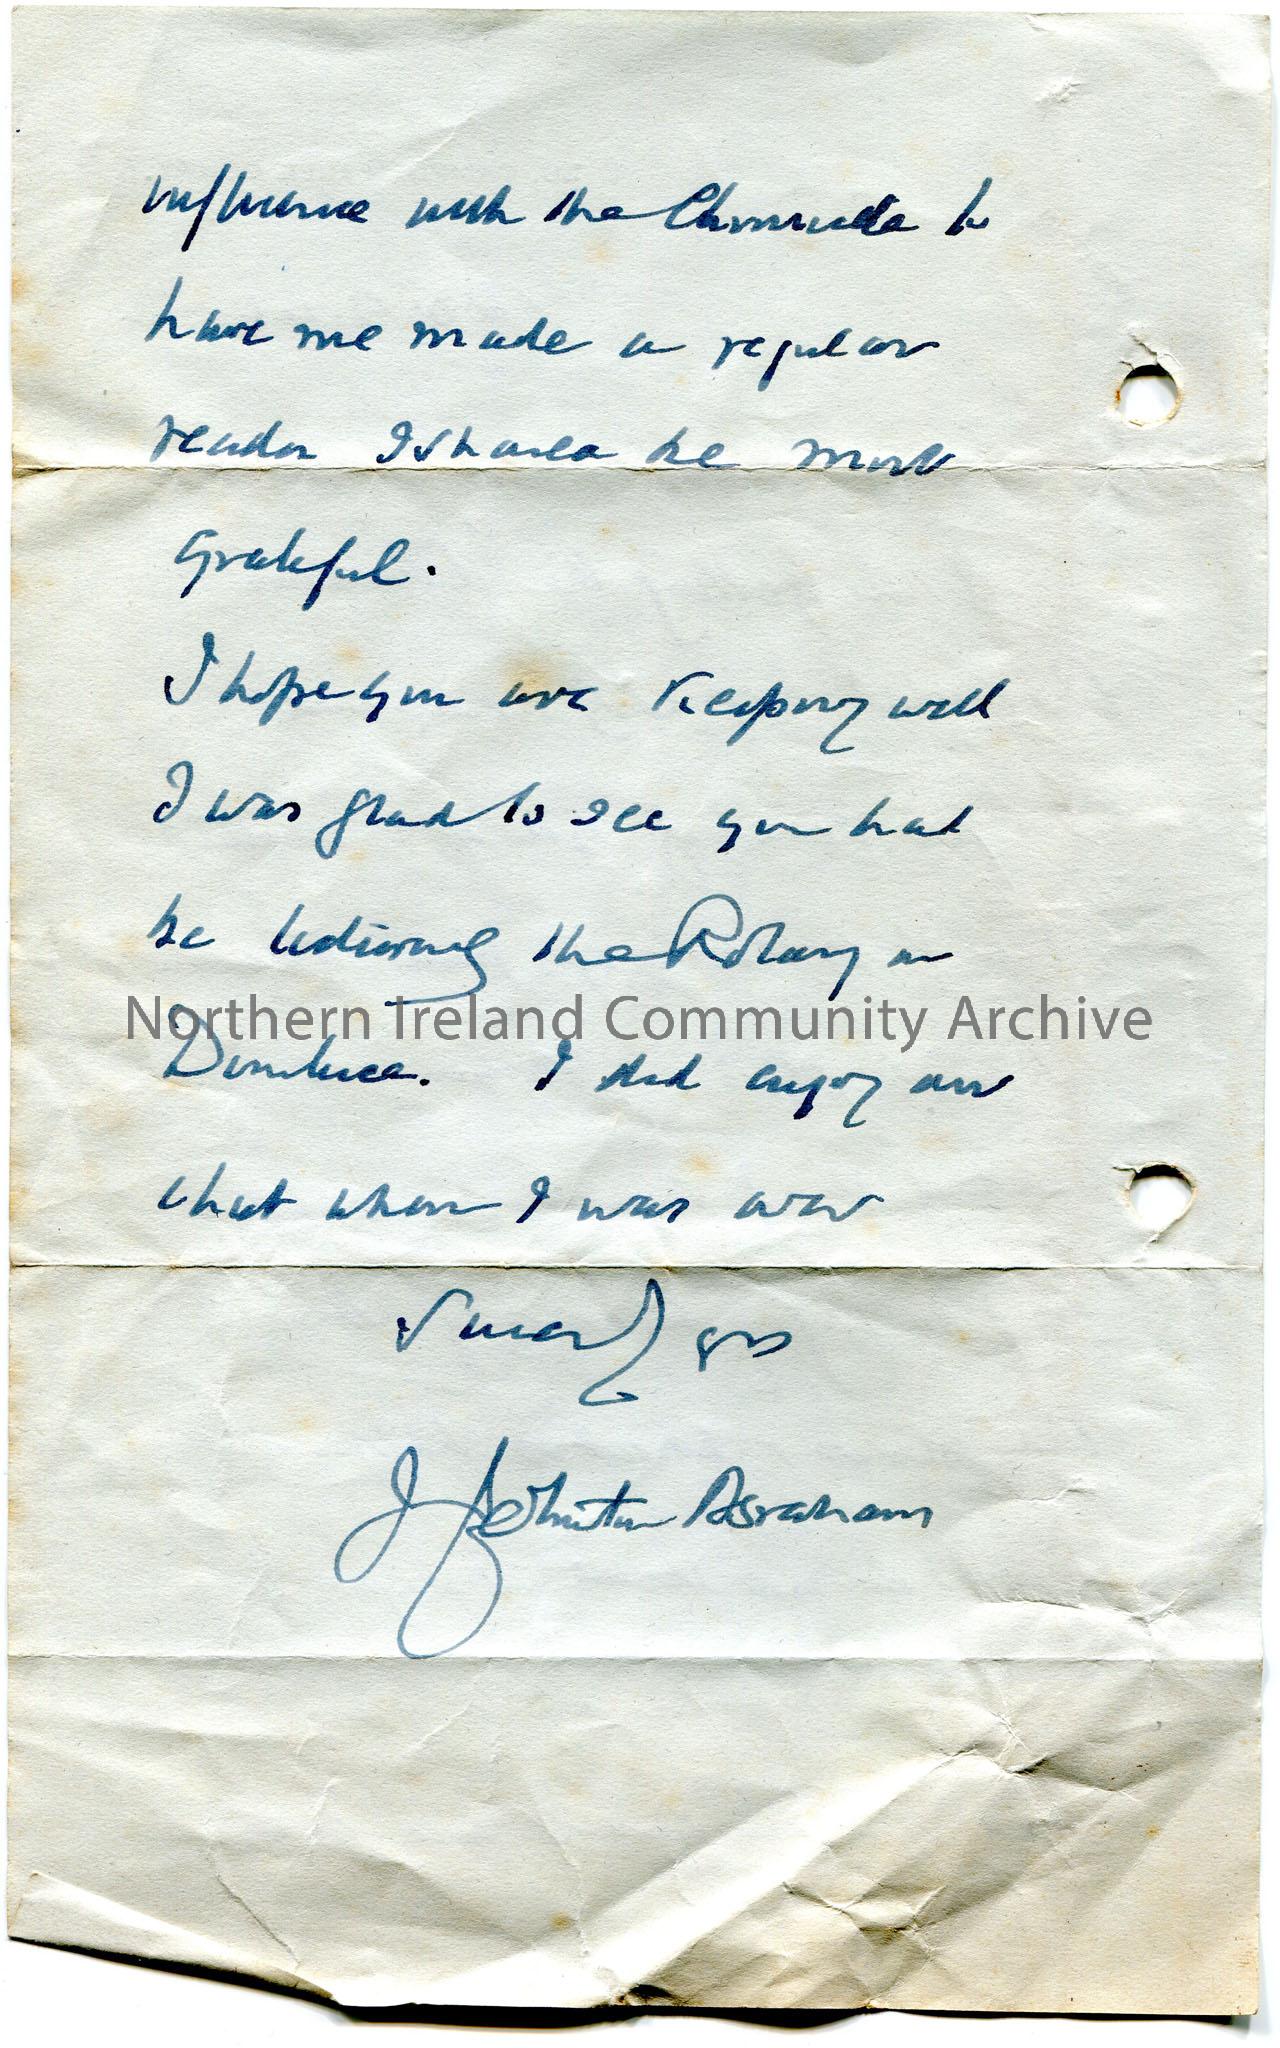 influence with the Chronicle to
have me made a regular
reader I should be most
grateful.
I hope you are keeping well
I was glad to see you had
be lecturing the Rotary on
Northern Ireland Community Archive
Dunluce. I did enjoy our
chat when I was over
Sincerely yrs
J Johnston Abraham